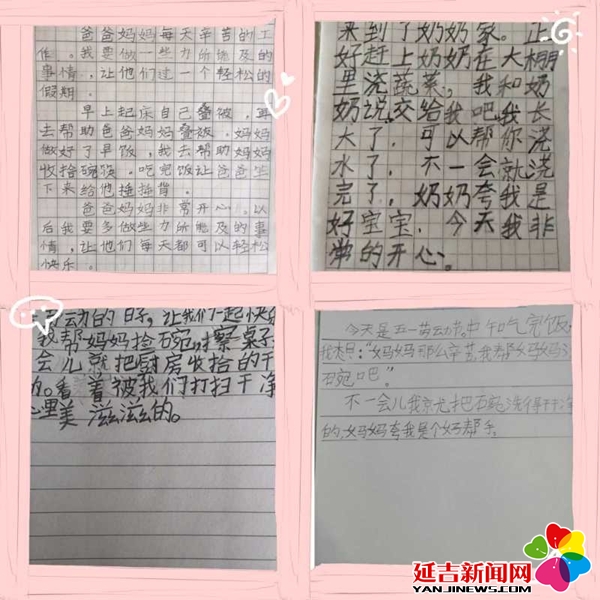 爸爸妈妈每天辛苦的工
作。我要做一些力所能及的
事情,让他们过一个轻松的
假期。
早上起床自己叠被,再
去帮助爸爸妈妈叠被。妈妈
做好了早饭,我去帮助妈妈
收拾碗筷。吃完饭让爸爸坐
下来给他捶捶背。
爸爸妈妈非常开心。以
后我要多做些力所能及的事
情,让他们每天都可以轻松
快乐。
来到了奶奶家。正
好赶上奶奶在大棚
里浇蔬菜,我和奶
奶说交给我吧,我长
大了,可以帮你浇
水了,不一会就浇
完了,奶奶夸我是
好宝宝,今天我非
常的开心。
动的日子,让我们一起快
我帮妈妈捡碗,擦桌子
会儿就把厨房收拾的干
的。看着被我们打扫干净
心里美滋滋的。
今天是五一劳动节。中午吃完饭,
我想:“妈妈那么辛苦,我帮妈妈
碗吧。”
不一会儿我就把碗洗得干干净
的,妈妈夸我是个好帮手。
延吉新闻网
YANJINEWS.COM